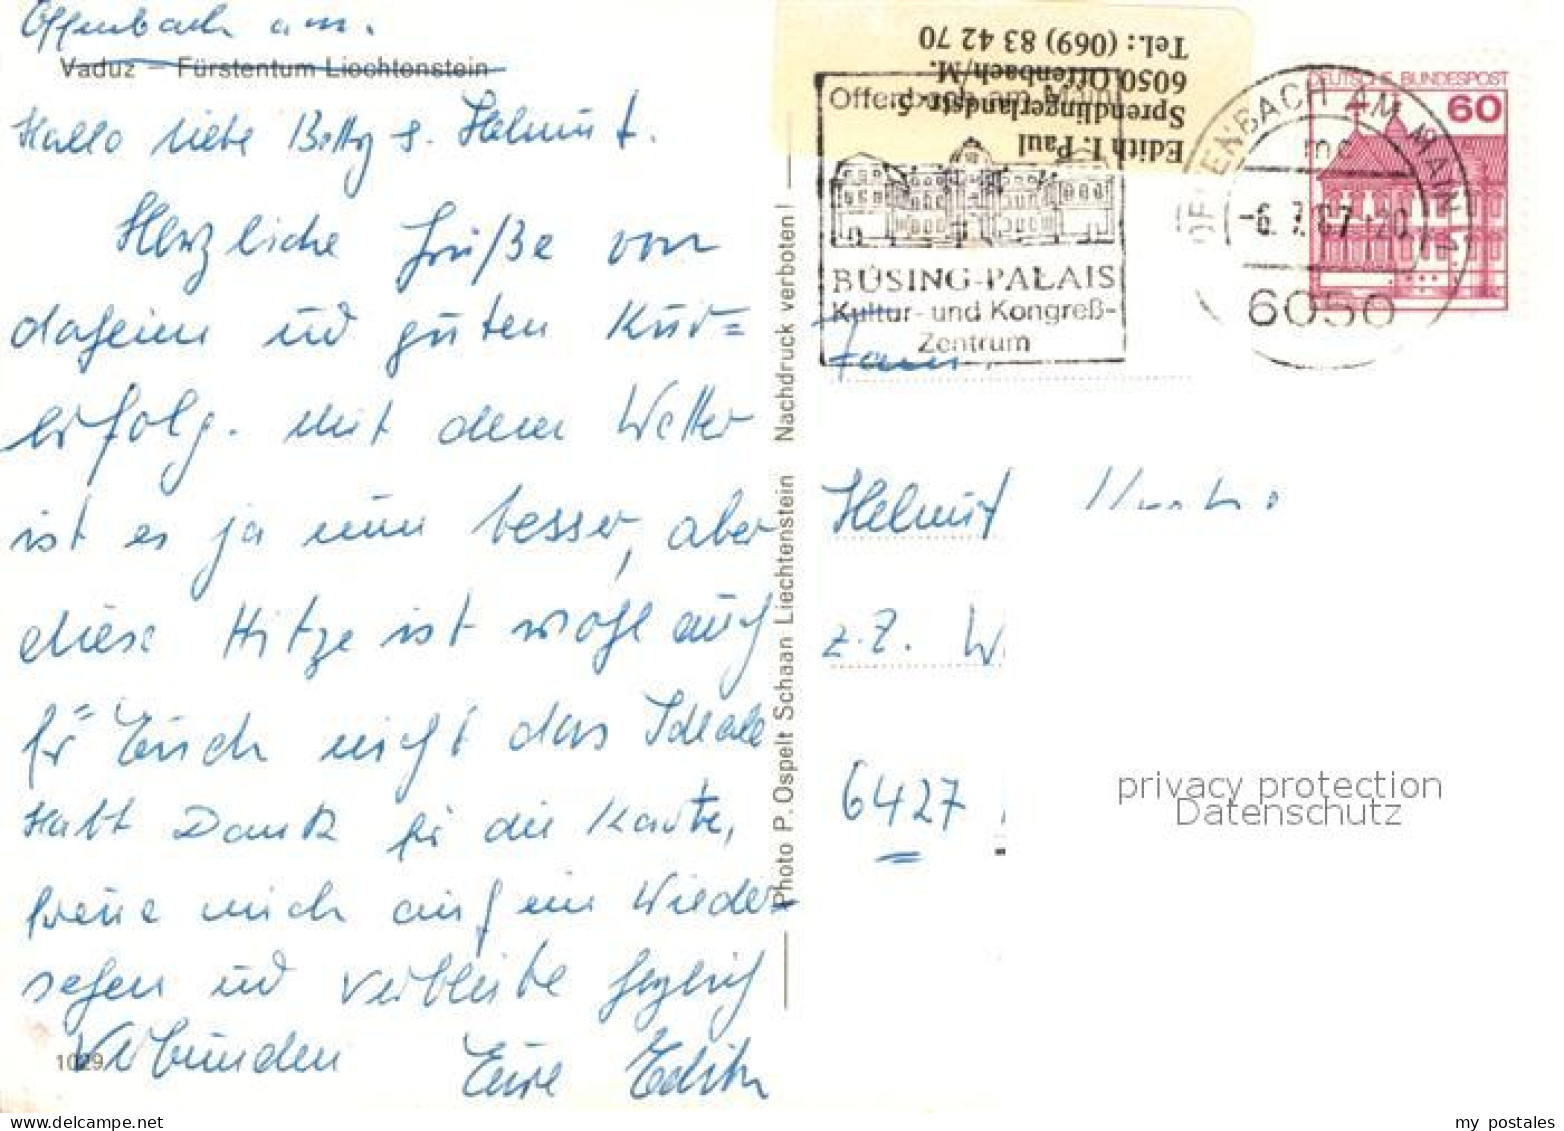 Offenbach am.
Vaduz — Fürstentum Liechtenstein
Hallo liebe Betty & Helmut.
Herzliche Grüße von
daheim und guten Kur=
erfolg. Mit dem Wetter
ist es ja nun besser, aber
diese Hitze ist wohl auch
für Euch nicht das Ideale
Habt Dank für die Karte,
freue mich auf ein Wieder-
sehen und verbleibe herzlich
Verbunden Eure Edith
1029
Photo P. Ospelt Schaan Liechtenstein Nachdruck verboten!
Edith I. Paul
Sprendlingerlandstr. 5
6050 Offenbach/M.
Tel.: (069) 83 42 70
Offenbach am Main
BÜSING-PALAIS
Kultur- und Kongreß-
Zentrum
OFFENBACH AM MAIN
mc
-6.7.87-20
6050
DEUTSCHE BUNDESPOST
60
Fam.
Helmut
z.Z. W
6427
privacy protection
Datenschutz
my postales